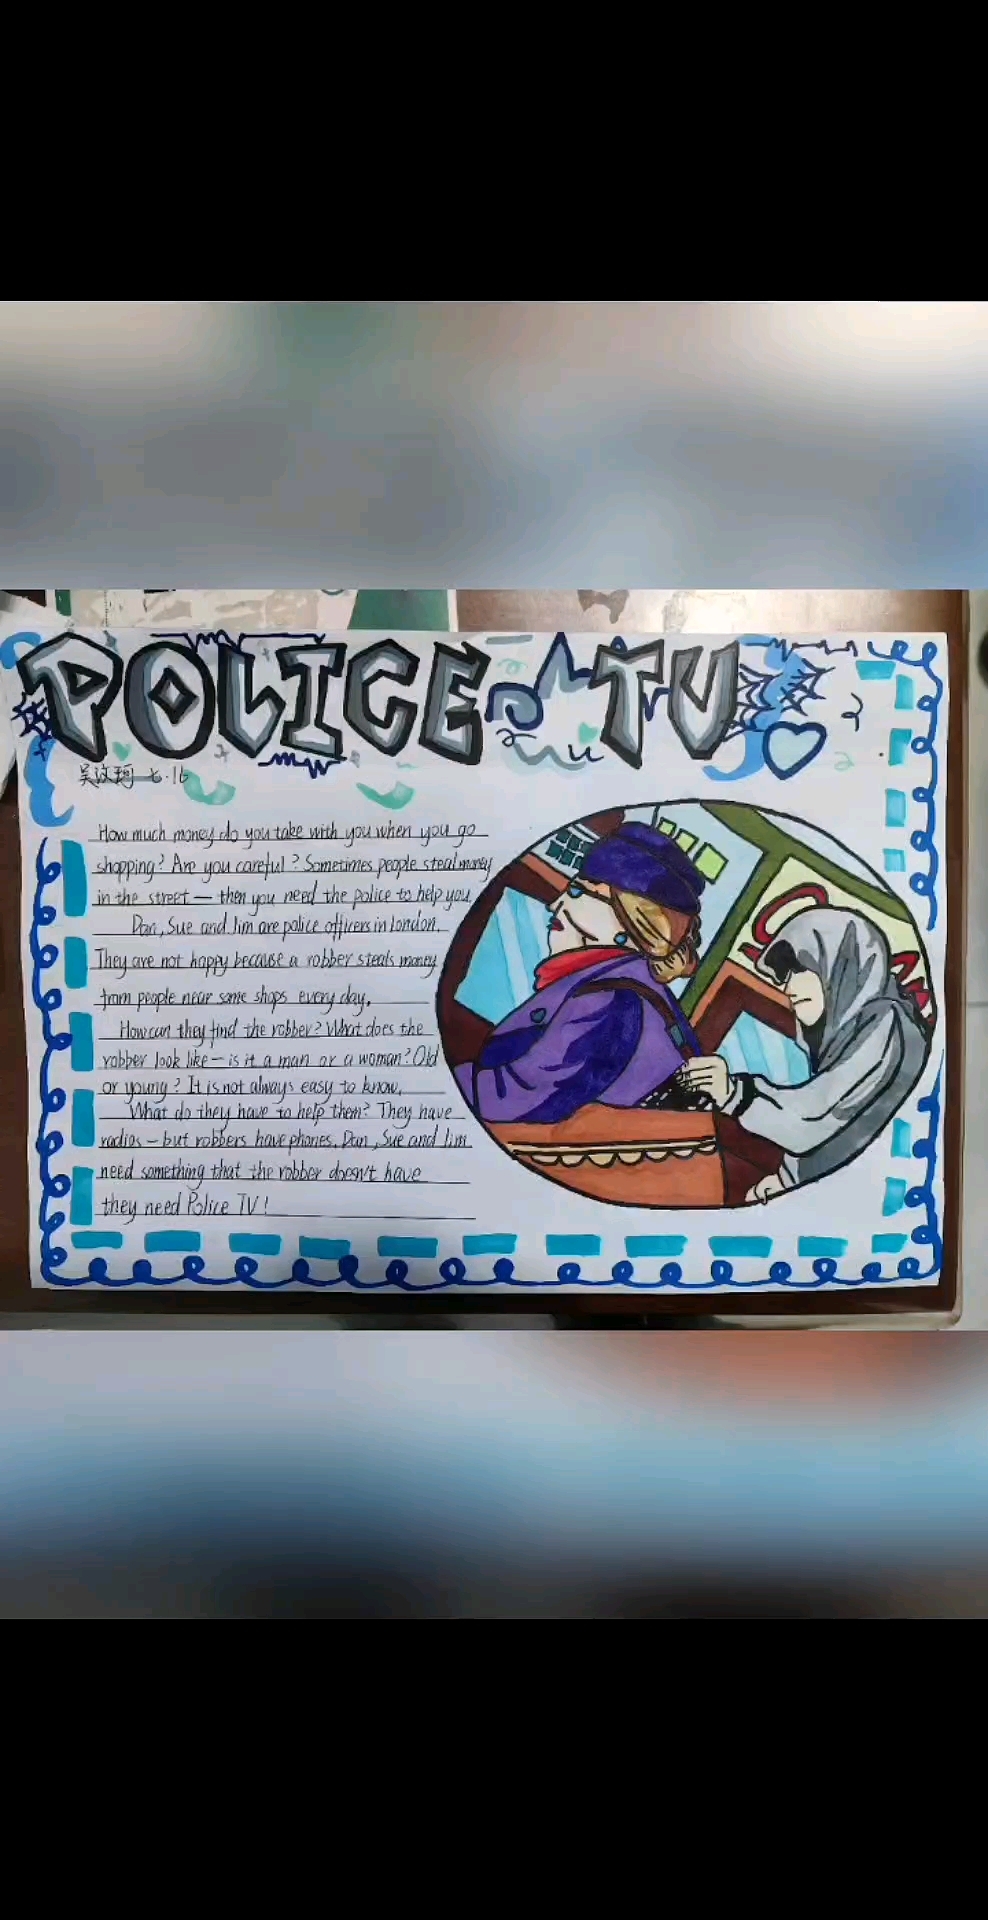 POLICE TV
吴汶珂 七.16
How much money do you take with you when you go
shopping? Are you careful? Sometimes people steal money
in the street — then you need the police to help you.
Dan, Sue and Jim are police officers in London.
They are not happy because a robber steals money
from people near some shops every day.
How can they find the robber? What does the
robber look like — is it a man or a woman? Old
or young? It is not always easy to know.
What do they have to help them? They have
radios — but robbers have phones. Dan, Sue and Jim
need something that the robber doesn't have
they need Police TV!